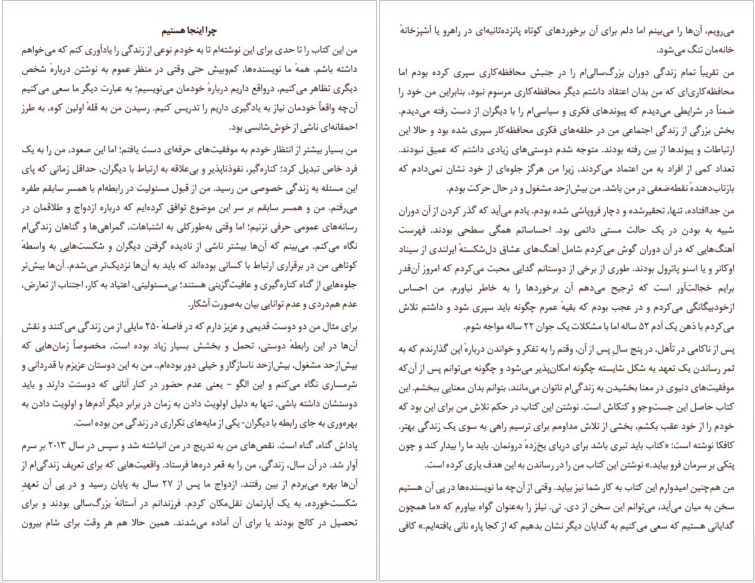 چرا اینجا هستیم
من این کتاب را تا حدی برای این نوشته‌ام تا به خودم نوعی از زندگی را یادآوری کنم که می‌خواهم
داشته باشم. همهٔ ما نویسنده‌ها، کم‌وبیش حتی وقتی در منظر عموم به نوشتن دربارهٔ شخص
دیگری تظاهر می‌کنیم، درواقع داریم دربارهٔ خودمان می‌نویسیم؛ به عبارت دیگر ما سعی می‌کنیم
آن‌چه واقعاً خودمان نیاز به یادگیری داریم را تدریس کنیم. رسیدن من به قلهٔ اول کوه، به طرز
احمقانه‌ای ناشی از خوش‌شانسی بود.
من بسیار بیشتر از انتظار خودم به موفقیت‌های حرفه‌ای دست یافتم؛ اما این صعود، من را به یک
فرد خاص تبدیل کرد؛ کناره‌گیر، نفوذناپذیر و بی‌علاقه به ارتباط با دیگران، حداقل زمانی که پای
این مسئله به زندگی خصوصی من رسید. من از قبول مسئولیت در رابطه‌ام با همسر سابقم طفره
می‌رفتم. من و همسر سابقم بر سر این موضوع توافق کرده‌ایم که درباره ازدواج و طلاقمان در
رسانه‌های عمومی حرفی نزنیم؛ اما وقتی به‌طورکلی به اشتباهات، گمراهی‌ها و گناهان زندگی‌ام
نگاه می‌کنم، می‌بینم که آن‌ها بیشتر ناشی از نادیده گرفتن دیگران و شکست‌هایی به واسطهٔ
کوتاهی من در برقراری ارتباط با کسانی بوده‌اند که باید به آن‌ها نزدیک‌تر می‌شدم. آن‌ها بیش‌تر
جلوه‌هایی از گناه کناره‌گیری و عافیت‌گزینی هستند؛ بی‌مسئولیتی، اعتیاد به کار، اجتناب از تعارض،
عدم هم‌دردی و عدم توانایی بیان به‌صورت آشکار.
برای مثال من دو دوست قدیمی و عزیز دارم که در فاصلهٔ ۲۵۰ مایلی از من زندگی می‌کنند و نقش
آن‌ها در این رابطهٔ دوستی، تحمل و بخشش بسیار زیاد بوده است، مخصوصاً زمان‌هایی که
بیش‌ازحد مشغول، بیش‌ازحد ناسازگار و خیلی دور بوده‌ام. من به این دوستان عزیزم با قدردانی و
شرمساری نگاه می‌کنم و این الگو – یعنی عدم حضور در کنار آنانی که دوستت دارند و باید
دوستشان داشته باشی، تنها به دلیل اولویت دادن به زمان در برابر دیگر آدم‌ها و اولویت دادن به
بهره‌وری به جای رابطه با دیگران- یکی از مایه‌های تکراری در زندگی من بوده است.
پاداش گناه، گناه است. نقص‌های من به تدریج در من انباشته شد و سپس در سال ۲۰۱۳ بر سرم
آوار شد. در آن سال، زندگی، من را به قعر دره‌ها فرستاد. واقعیت‌هایی که برای تعریف زندگی‌ام از
آن‌ها بهره می‌بردم از بین رفتند. ازدواج ما پس از ۲۷ سال به پایان رسید و در پی آن تعهدِ
شکست‌خورده، به یک آپارتمان نقل‌مکان کردم. فرزندانم در آستانهٔ بزرگ‌سالی بودند و برای
تحصیل در کالج بودند یا برای آن آماده می‌شدند. همین حالا هم هر وقت برای شام بیرون
می‌رویم، آن‌ها را می‌بینم اما دلم برای آن برخوردهای کوتاه پانزده‌ثانیه‌ای در راهرو یا آشپزخانهٔ
خانه‌مان تنگ می‌شود.
من تقریباً تمام زندگی دوران بزرگ‌سالی‌ام را در جنبش محافظه‌کاری سپری کرده بودم اما
محافظه‌کاری‌ای که من بدان اعتقاد داشتم دیگر محافظه‌کاری مرسوم نبود، بنابراین من خود را
ضمناً در شرایطی می‌دیدم که پیوندهای فکری و سیاسی‌ام را با دیگران از دست رفته می‌دیدم.
بخش بزرگی از زندگی اجتماعی من در حلقه‌های فکری محافظه‌کار سپری شده بود و حالا این
ارتباطات و پیوندها از بین رفته بودند. متوجه شدم دوستی‌های زیادی داشتم که عمیق نبودند.
تعداد کمی از افراد به من اعتماد می‌کردند، زیرا من هرگز جلوه‌ای از خود نشان نمی‌دادم که
بازتاب‌دهندهٔ نقطه‌ضعفی در من باشد. من بیش‌ازحد مشغول و در حال حرکت بودم.
من جداافتاده، تنها، تحقیرشده و دچار فروپاشی شده بودم. یادم می‌آید که گذر کردن از آن دوران
شبیه به بودن در یک حالت مستی دائمی بود. احساساتم همگی سطحی بودند، فهرست
آهنگ‌هایی که در آن دوران گوش می‌کردم شامل آهنگ‌های عشاق دل‌شکستهٔ ایرلندی از سیناد
اوکانر و یا اسنو پاترول بودند. طوری از برخی از دوستانم گدایی محبت می‌کردم که امروز آن‌قدر
برایم خجالت‌آور است که ترجیح می‌دهم آن برخوردها را به خاطر نیاورم. من احساس
ازخودبیگانگی می‌کردم و در عجب بودم که بقیهٔ عمرم چگونه باید سپری شود و داشتم تلاش
می‌کردم با ذهن یک آدم ۵۲ ساله اما با مشکلات یک جوان ۲۲ ساله مواجه شوم.
پس از ناکامی در تأهل، در پنج سالِ پس از آن، وقتم را به تفکر و خواندن دربارهٔ این گذارندم که به
ثمر رساندن یک تعهد به شکل شایسته چگونه امکان‌پذیر می‌شود و چگونه می‌توانم پس از آن‌که
موفقیت‌های دنیوی در معنا بخشیدن به زندگی‌ام ناتوان می‌مانند، بتوانم بدان معنایی ببخشم. این
کتاب حاصل این جست‌وجو و کنکاش است. نوشتن این کتاب در حکم تلاش من برای این بود که
خودم را از خود عقب بکشم، بخشی از تلاش مداومم برای ترسیم راهی به سوی یک زندگی بهتر.
کافکا نوشته است: «کتاب باید تبری باشد برای دریای یخ‌زدهٔ درونمان. باید ما را بیدار کند و چون
پتکی بر سرمان فرو بیاید.» نوشتن این کتاب من را در رساندن به این هدف یاری کرده است.
من هم‌چنین امیدوارم این کتاب به کار شما نیز بیاید. وقتی از آن‌چه ما نویسنده‌ها در پی آن هستیم
سخن به میان می‌آید، می‌توانم این سخن از دی. تی. نیلز را به‌عنوان گواه بیاورم که «ما همچون
گدایانی هستیم که سعی می‌کنیم به گدایان دیگر نشان بدهیم که از کجا پاره نانی یافته‌ایم.» کافی